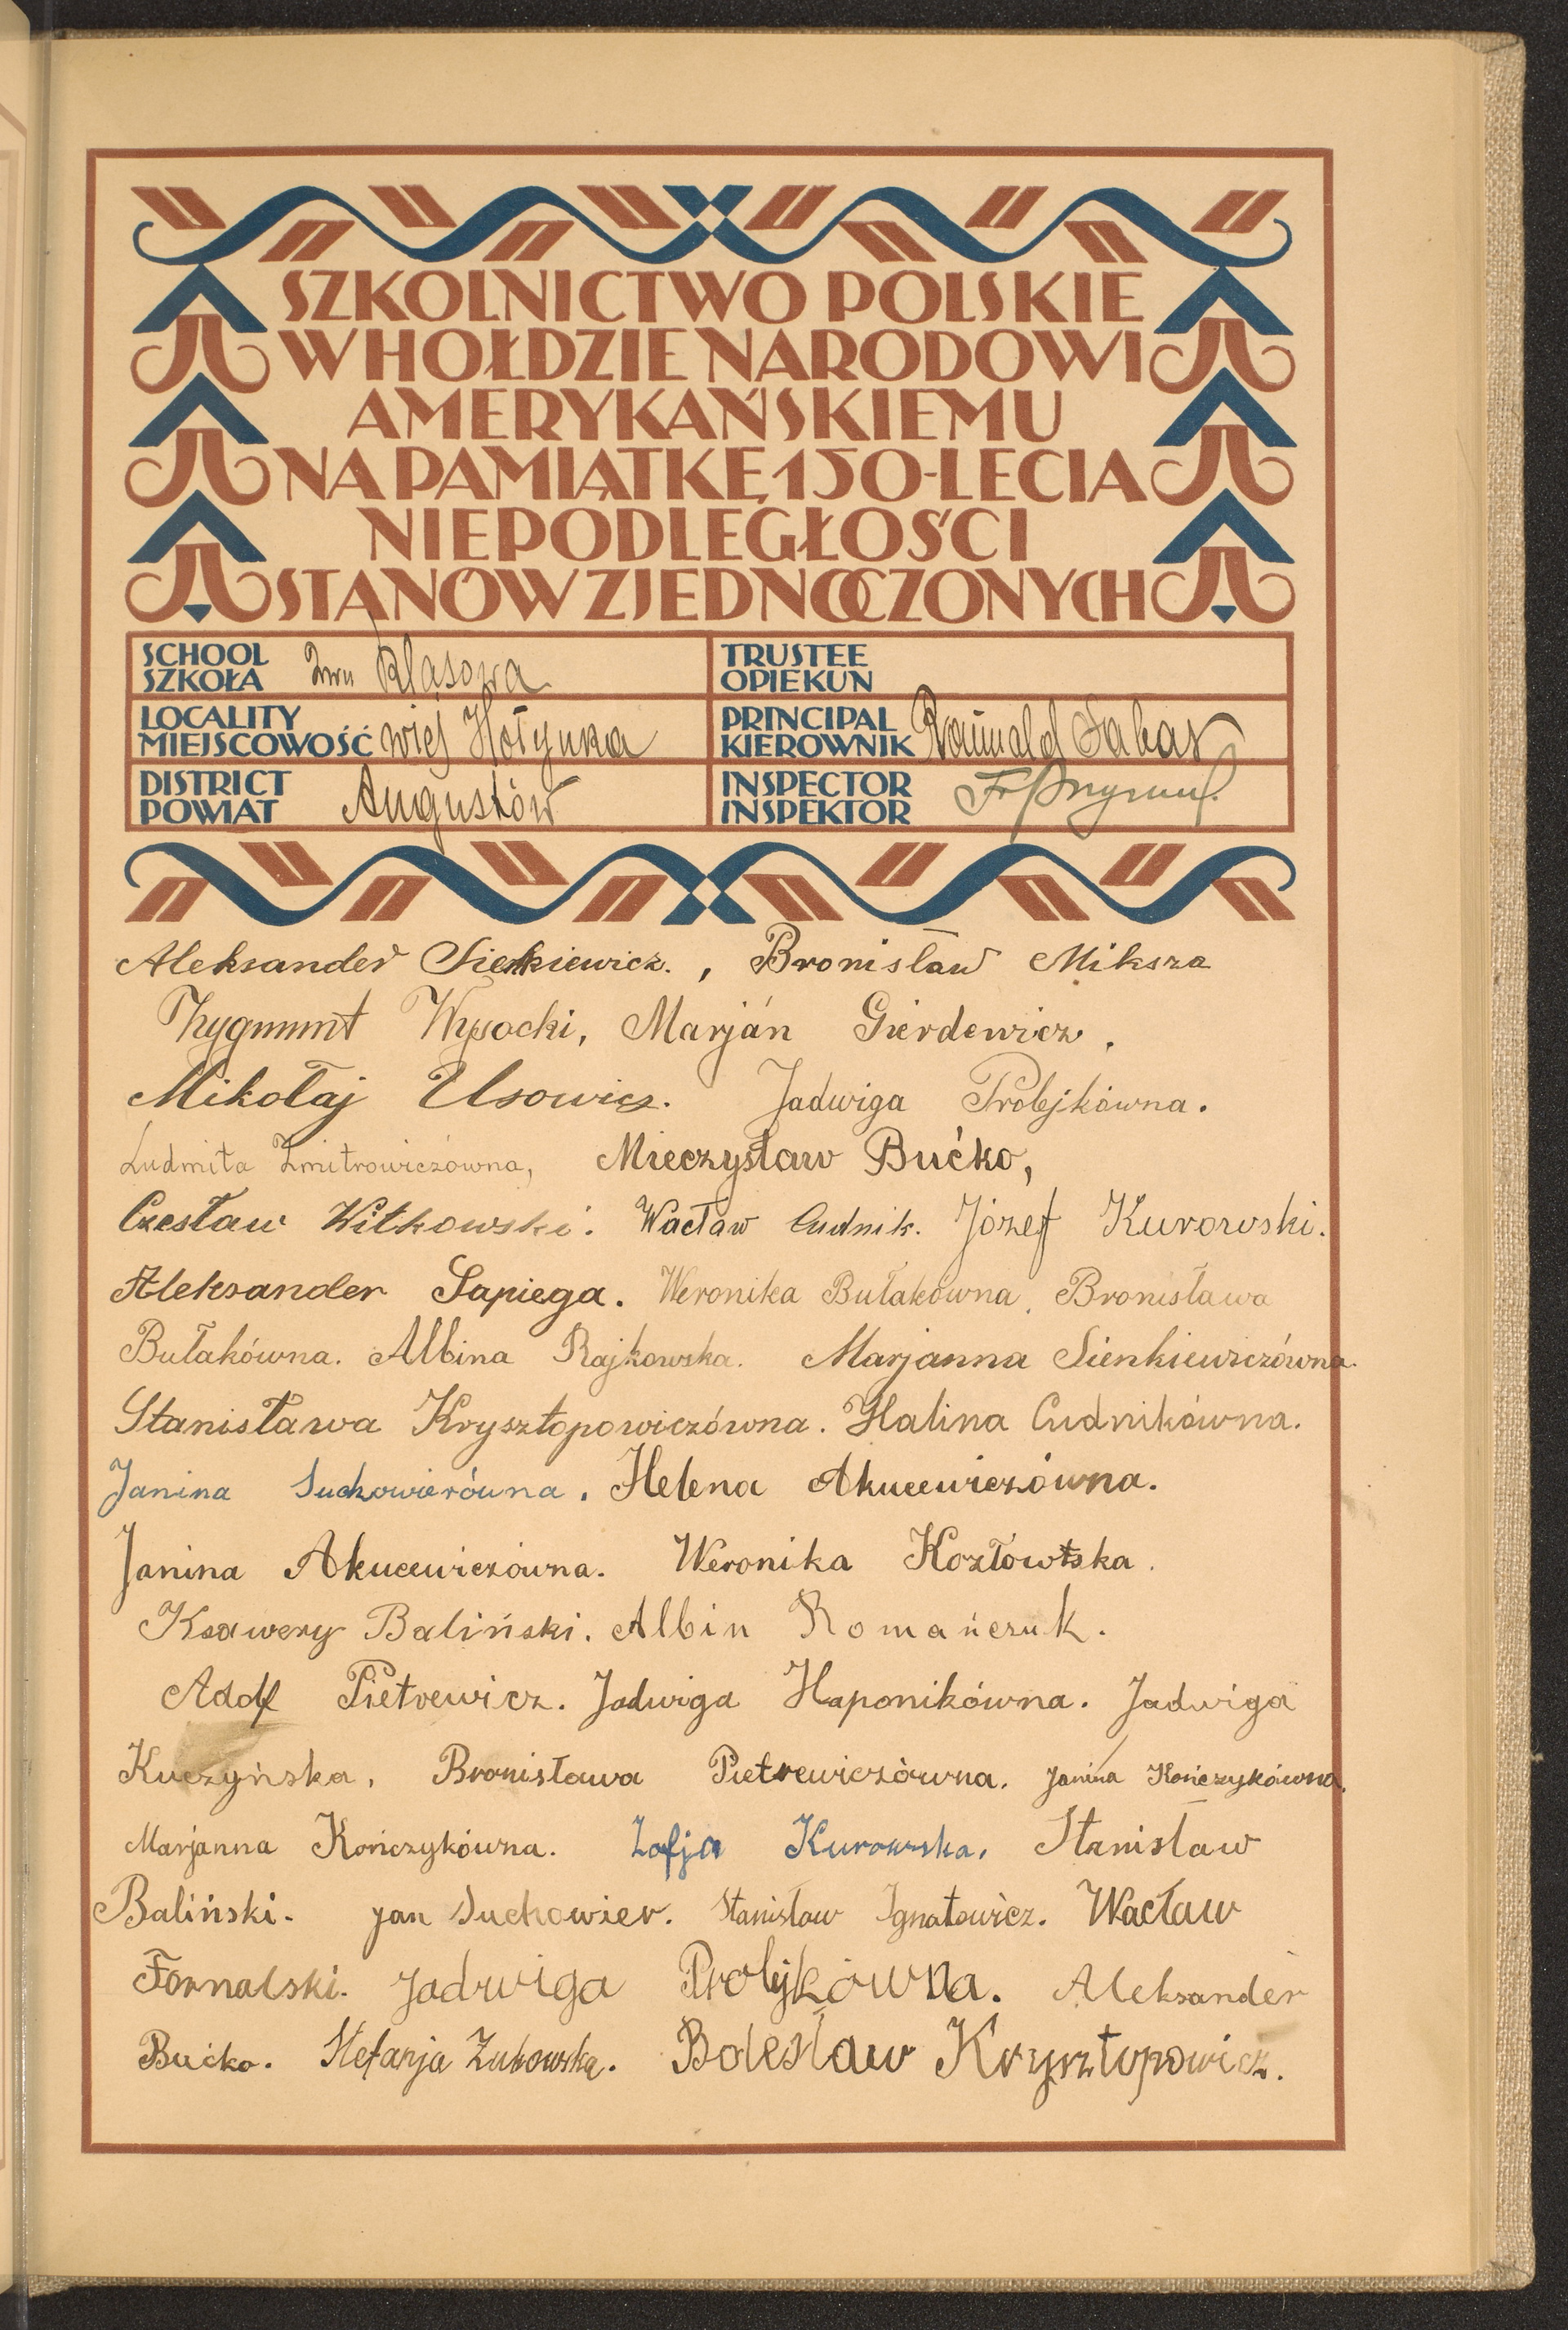 SZKOLNICTWO POLSKIE
W HOŁDZIE NARODOWI
AMERYKAŃSKIEMU
NA PAMIĄTKĘ 150-LECIA
NIEPODLEGŁOŚCI
STANÓW ZJEDNOCZONYCH
SCHOOL
SZKOŁA Klasowa
TRUSTEE
OPIEKUN
LOCALITY
MIEJSCOWOŚĆ wieś Hołynka
PRINCIPAL
KIEROWNIK Romuald Sabas
DISTRICT
POWIAT Augustów
INSPECTOR
INSPEKTOR
Aleksander Sienkiewicz. , Bronisław Miksza
Zygmunt Wysocki, Marján Gierdewicz ,
Mikołaj Usowicz. Jadwiga Prolejkówna.
Ludmiła Zmitrowiczówna, Mieczysław Bućko,
Czesław Witkowski. Wacław Cudnik. Józef Kurowski.
Aleksander Sapiega. Weronika Bułakówna, Bronisława
Bułakówna. Albina Rajkowska. Marjanna Sienkiewiczówna.
Stanisława Krysztopowiczówna. Halina Cudnikówna.
Janina Suchowierówna. Helena Akucewiczówna.
Janina Akucewiczówna. Weronika Kozłowska.
Ksawery Baliński. Albin Romańczuk.
Adolf Pietrewicz. Jadwiga Haponikówna. Jadwiga
Kuczyńska, Bronisława Pietrewiczówna. Janina Kończykówna.
Marjanna Kończykówna. Zofja Kurowska. Stanisław
Baliński. Jan Suchowier. Stanisław Ignatowicz. Wacław
Fornalski. Jadwiga Prolejkówna. Aleksander
Bućko. Stefanja Zubowska. Bolesław Krysztopowicz.